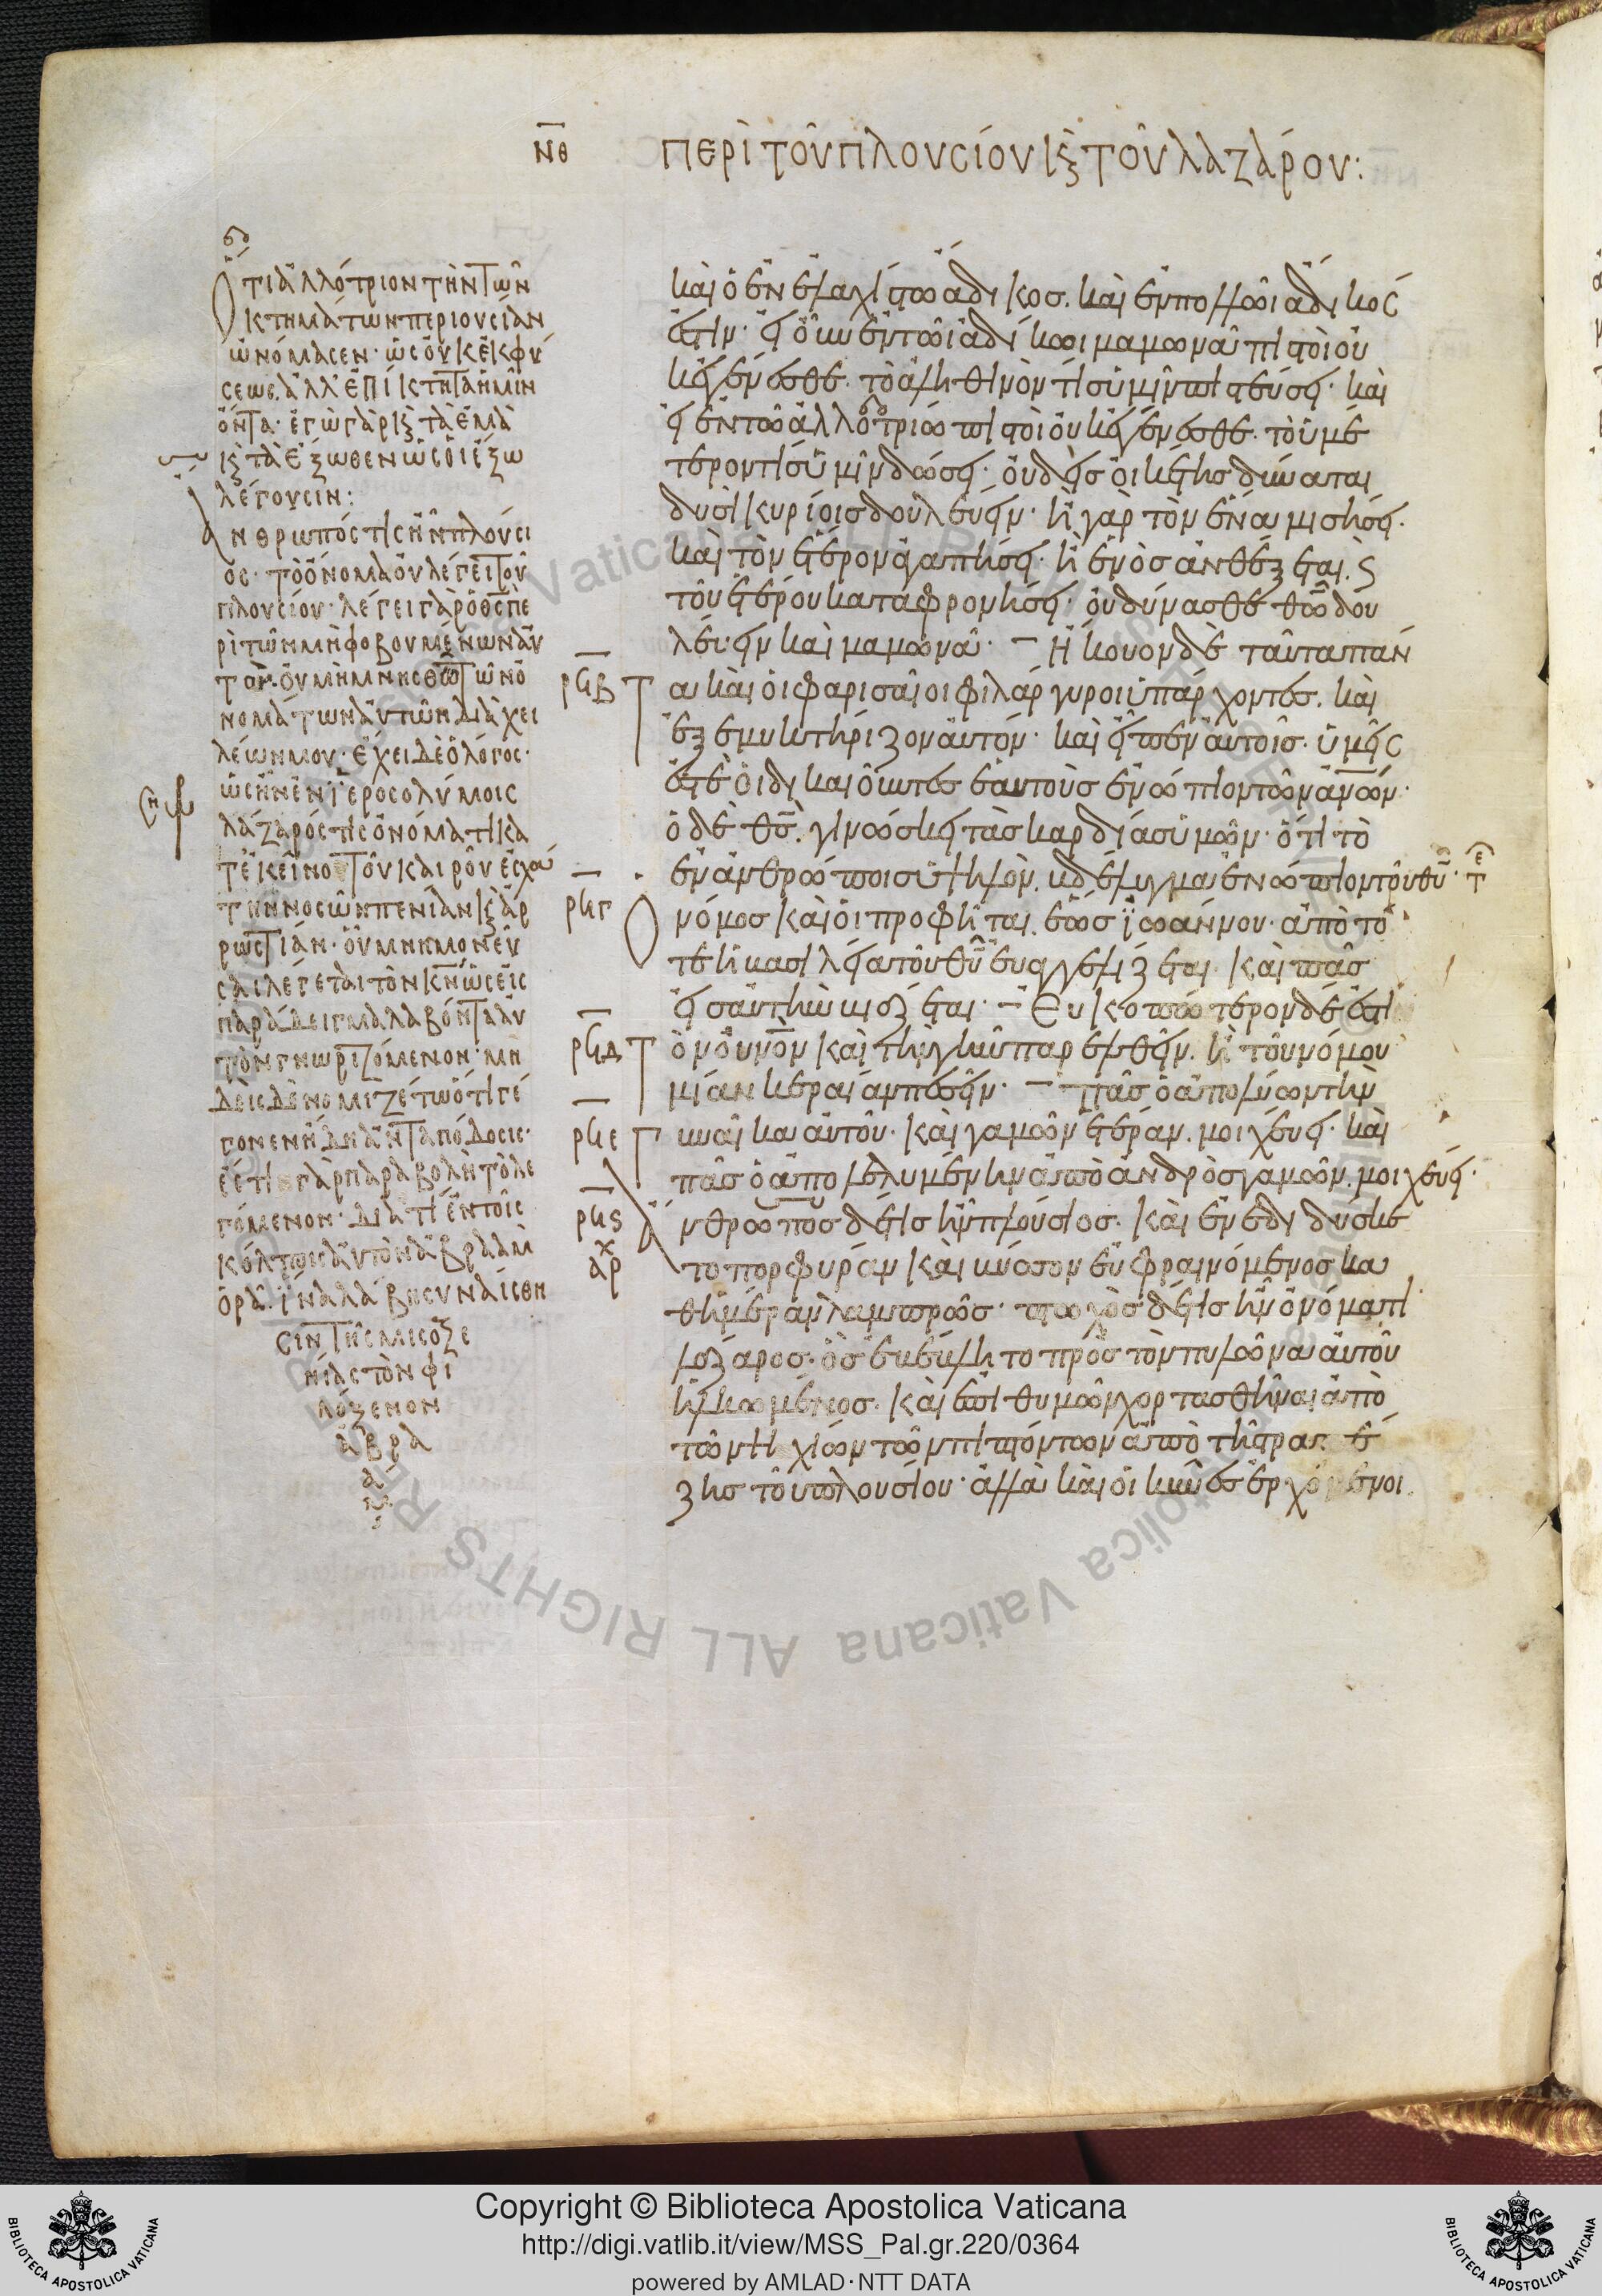 ΝΘ περὶ τοῦ πλουσίου κ̀ τοῦ λαζάρου:
ὅτι ἀλλότριον τὴν τῶν
κτημάτων περιουσίαν
ὠνόμασεν· ὡς οὐκ ἐκ φύ
σεως ἀλλ' ἐπίκτητα ἡμῖν
ὄντα· ἐγὼ γὰρ κ̀ τὰ ἐμὰ
κ̀ τὰ ἔξωθεν ὡς οἱ ἔξω
λέγουσιν:
ἄνθρωπός τις ἦν πλούσι
ος· τὸ ὄνομα οὐ λέγει τοῦ
πλουσίου· λέγει γὰρ ὁ θς πε
ρὶ τῶν μὴ φοβουμένων αὐ
τόν· οὐ μὴ μνησθῶ τῶν ὀ
νομάτων αὐτῶν διὰ χει
λέων μου· ἔχει δὲ ὁ λόγος·
ὡς ἦν ἐν ἱεροσολύμοις
λάζαρός τις ὀνόματι κα
τ' ἐκεῖνο τοῦ καιροῦ ἐσχά
την νοσῶν πενίαν κ̀ ἀρ
ρωστίαν· οὗ μνημονεῦ
σαι λέγεται τὸν κν ὡς εἰς
παράδειγμα λαβόντα αὐ
τὸν γνωριζόμενον· μη
δεὶς δὲ νομιζέτω ὅτι γέ
γονεν ἤδη ἀνταπόδοσις·
ἐστὶ γὰρ παραβολὴ τὸ λε
γόμενον· διὰ τί ἐν τοῖς
κόλποις αὐτὸν ἀβραὰμ
ὁρᾷ· ἵνα λάβῃ συναίσθη
σιν τῆς μισοξε
νίας τὸν φι
λόξενον
ἀβρα
ά
μ
καὶ ὁ ἐν ἐλαχίστω ἄδικος. καὶ ἐν πολλῶι ἄδικός
ἐστιν· εἰ οὖν ἐν τῶι ἀδίκωι μαμωνᾶ πιστοὶ οὐ
κ ἐγένεσθε. τὸ ἀληθινὸν τίς ὑμῖν πιστεύσει· καὶ
εἰ ἐν τῶ ἀλλοτρίω πιστοὶ οὐκ ἐγένεσθε. τὸ ὑμέ
τερον τίς ὑμῖν δώσει· οὐδεὶς οἰκέτης δύναται
δυσὶ κυρίοις δουλεύειν· ἢ γὰρ τὸν ἕνα μισήσει.
καὶ τὸν ἕτερον ἀγαπήσει· ἢ ἑνὸς ἀνθέξεται. κ̀
τοῦ ἑτέρου καταφρονήσει· οὐ δύνασθε θω δου
λεύειν καὶ μαμωνᾶ· — Ἤκουον δὲ ταῦτα πάν
ρϟβ τα καὶ οἱ φαρισαῖοι φιλάργυροι ὑπάρχοντες. καὶ
ἐξεμυκτήριζον αὐτόν· καὶ εἶπεν αὐτοῖς· ὑμεῖς
ἐστὲ οἱ δικαιοῦντες ἑαυτοὺς ἐνώπιον τῶν ανων·
ὁ δὲ θς. γινώσκει τὰς καρδίας ὑμῶν· ὅτι τὸ
ἐν ἀνθρώποις ὑψηλὸν. βδέλυγμα ἐνώπιον τοῦ θυ·
ρϟγ ὁ νόμος καὶ οἱ προφῆται. ἕως ἰωάννου· ἀπὸ τό
τε ἡ βασιλεία τοῦ θυ εὐαγγελίζεται καὶ πᾶς
εἰς αὐτὴν βιάζεται· — Εὐκοπώτερον δέ ἐστι
ρϟδ τὸν ουνον καὶ τὴν γῆν παρελθεῖν. ἢ τοῦ νόμου
μίαν κεραίαν πεσεῖν· — πᾶς ὁ ἀπολύων τὴν
ρϟε γυναῖκα αὐτοῦ· καὶ γαμῶν ἑτέραν. μοιχεύει· καὶ
πᾶς ὁ ἀπολελυμένην ἀπὸ ἀνδρὸς γαμῶν. μοιχεύει·
ρϟς ἄνθρωπος δέ τις ἦν πλούσιος. καὶ ἐνεδιδύσκε
αρχ το πορφύραν καὶ βύσσον εὐφραινόμενος κα
θ' ἡμέραν λαμπρῶς· πτωχὸς δέ τις ἦν ὀνόματι
λάζαρος. ὃς ἐβέβλητο πρὸς τὸν πυλῶνα αὐτοῦ
ἡλκωμένος. καὶ ἐπιθυμῶν χορτασθῆναι ἀπὸ
τῶν ψιχίων τῶν πιπτόντων ἀπὸ τῆς τραπέ
ζης τοῦ πλουσίου· ἀλλὰ καὶ οἱ κύνες ἐρχόμενοι
Copyright © Biblioteca Apostolica Vaticana
http://digi.vatlib.it/view/MSS_Pal.gr.220/0364
powered by AMLAD·NTT DATA
BIBLIOTECA APOSTOLICA VATICANA
BIBLIOTECA APOSTOLICA VATICANA